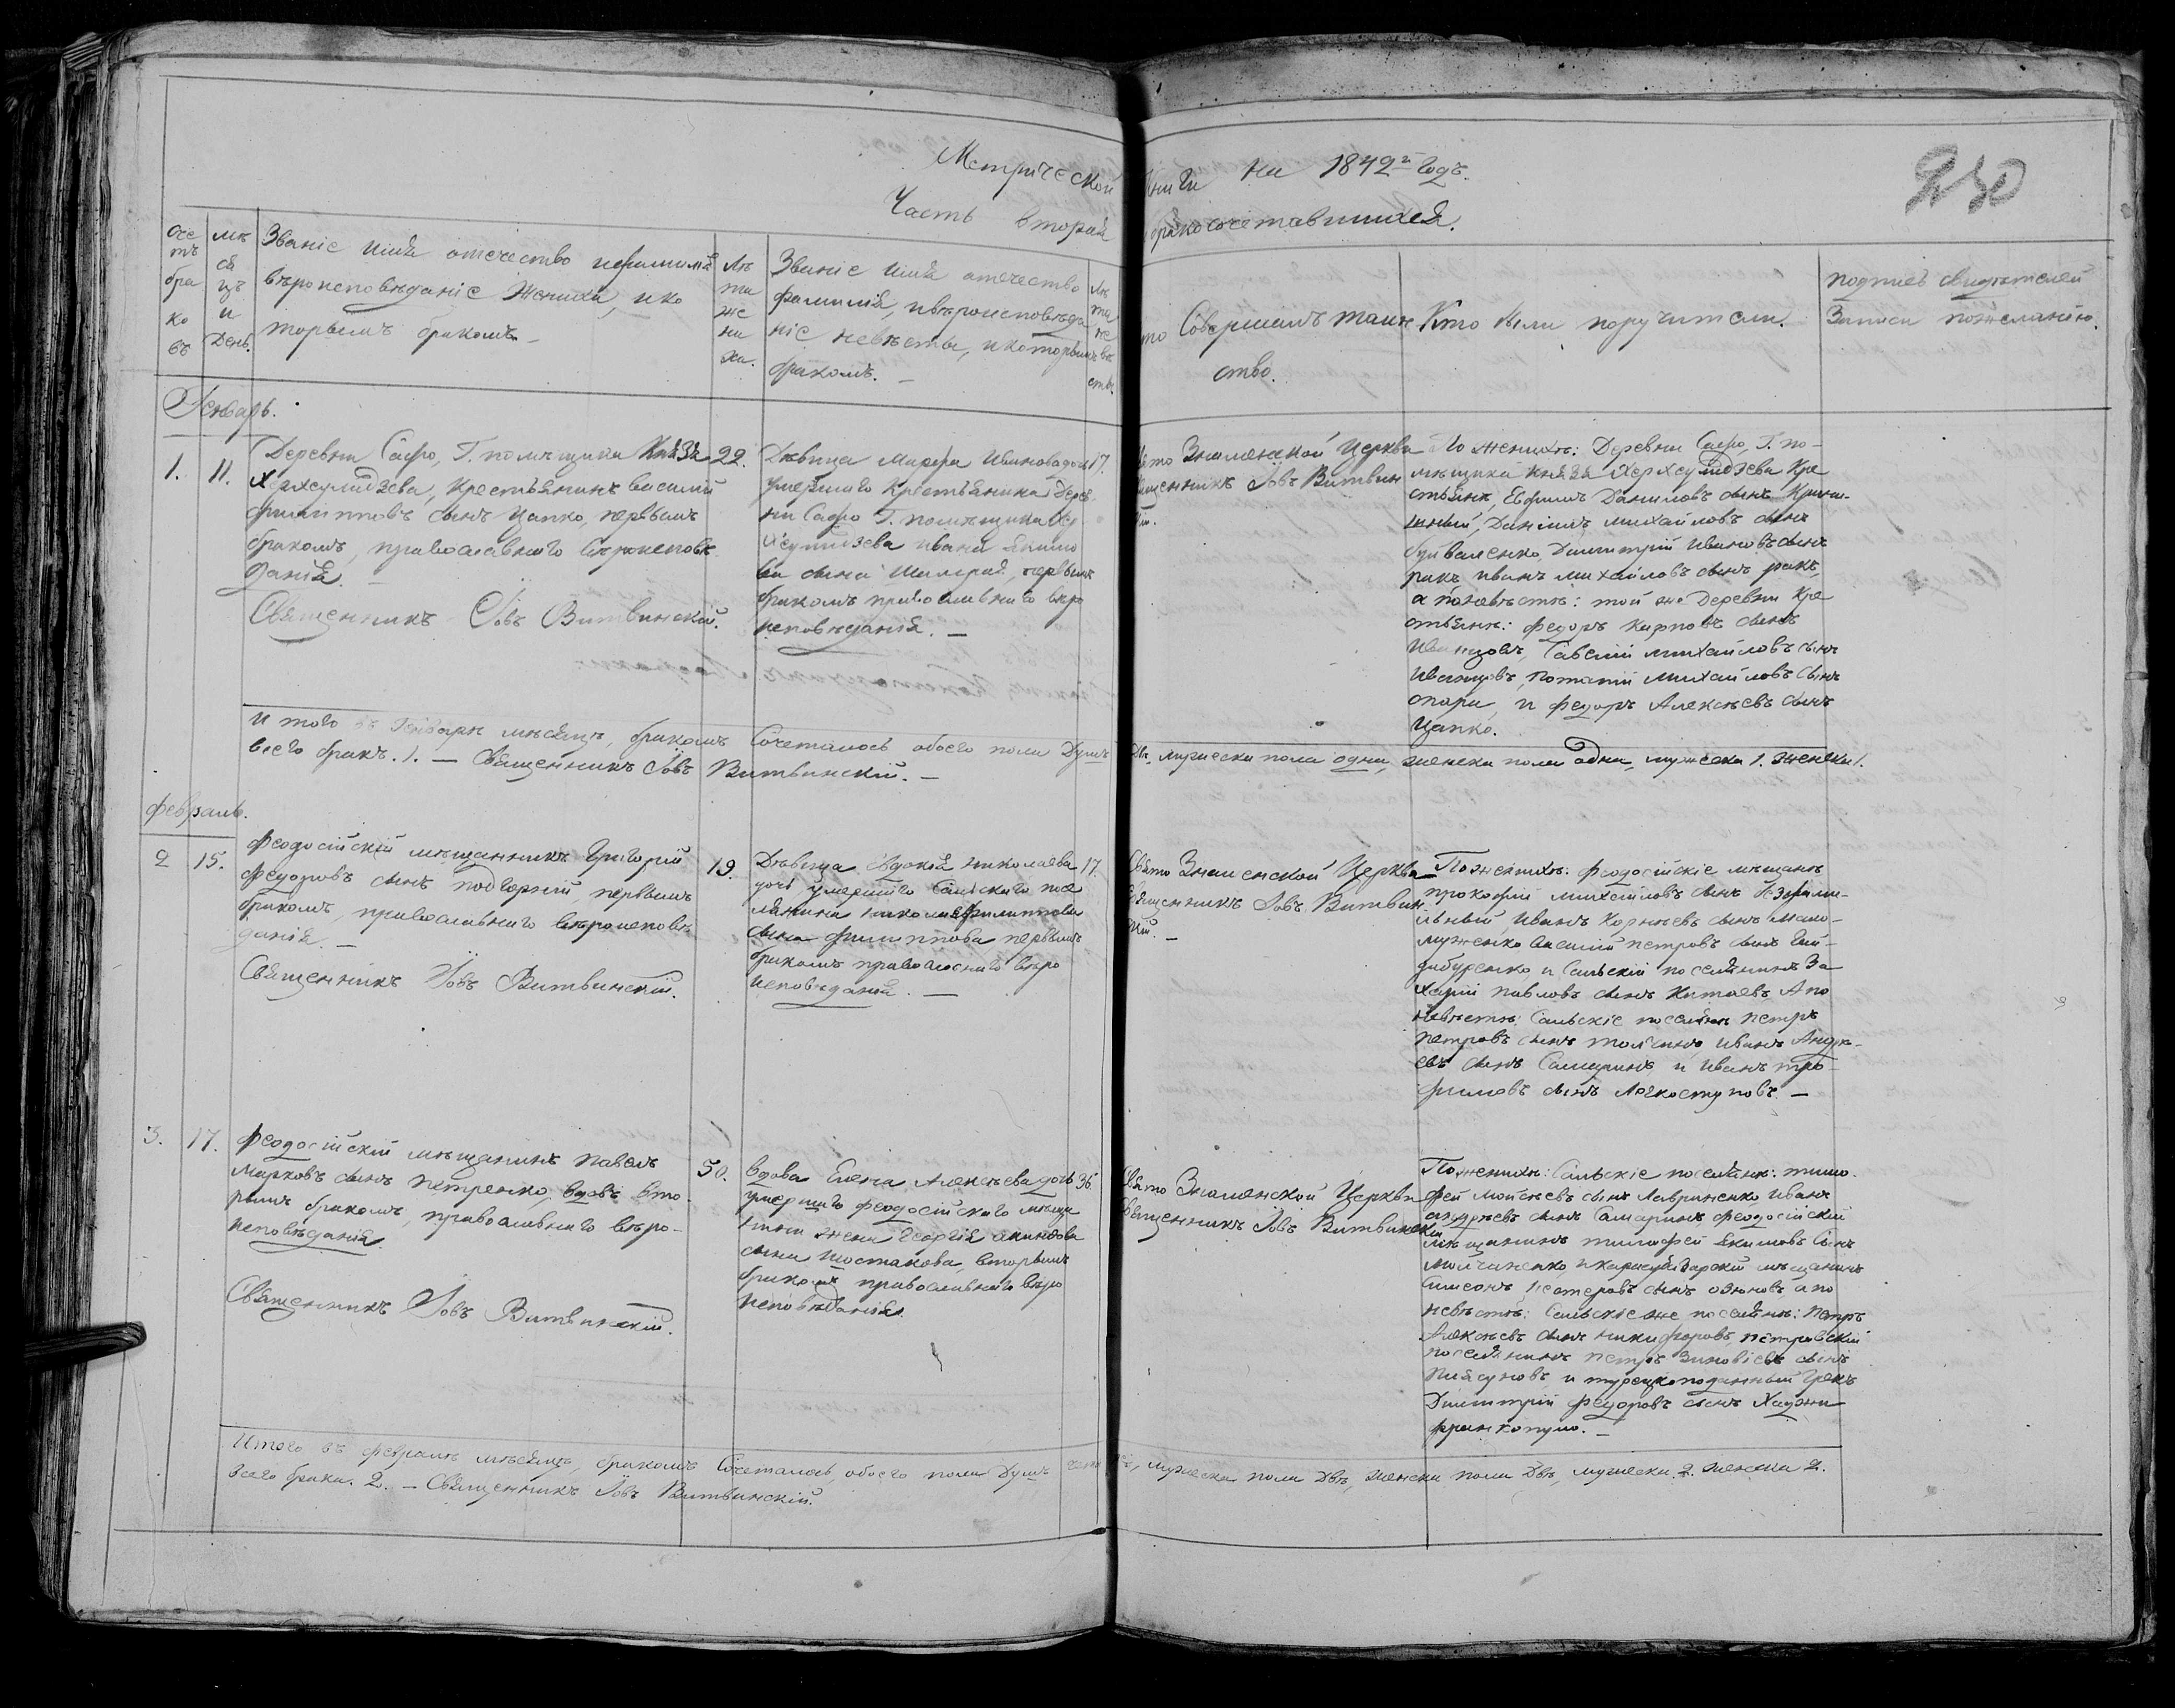 Метрической книги на 1842й годъ.
230
Часть вторая о бракосочетавшихся.
Сче
тъ
бра
ко
въ
Мѣ
ся
цъ
и
День.
Званіе имя отечество и фамилія
вѣроисповѣданіе Жениха, и ко
торымъ бракомъ.
Лѣ
та
же
ни
ха.
Званіе имя отечество
фамилія, и вѣроисповѣда
ніе невѣсты, и которымъ
бракомъ. —
Лѣ
та
не
вѣ
сты.
Кто Совершалъ таин
ство.
Кто были поручители.
подписъ свидѣтелей
Записи пожеланію.
Генварь.
1.
11.
Деревни Сафо, Г. помѣщика Князя
Херхеулидзева, Крестьянинъ василій
филипповъ сынъ Цапко, первымъ
бракомъ, православнаго вѣроисповѣ
данія. —
Священникъ Іовъ Витвинскій.
22.
Дѣвица Марфа Иванова дочь
умершаго Крестьянина Дерев
ни Сафо Г. помѣщика Хер
хеулидзева ивана
ва сына первымъ
бракомъ православнаго вѣро
исповѣданія. —
17.
Свято Знаменской Церкви
Священникъ Іовъ Витвин
скій.
По женихѣ: Деревни Сафо, Г. по-
мѣщика князя Херхеулидзева Кре
стьяне, Ефимъ Даниловъ сынъ
Даніилъ михайловъ сынъ
Димитрій Ивановъ сынъ
ракъ, иванъ михайловъ сынъ ракъ,
а поневѣстѣ: той же Деревни Кре
стьяне: федоръ Карповъ сынъ
Иванцовъ, Савелій михайловъ сынъ
Иванцовъ, Потапій Михайловъ сынъ
опара, и федоръ Алексѣевъ сынъ
Цапко.
И того въ Генварѣ мѣсяцѣ, бракомъ Сочеталось обоего пола Душъ Двѣ, мужеска пола одна, женска пола одна, мужеска 1. женска 1.
всего бракъ. 1. — Священникъ Іовъ Витвинскій. —
февраль.
2
15.
феодосійскій мѣщанинъ Григорій
федоровъ сынъ подгорный, первымъ
бракомъ, православнаго вѣроисповѣ
данія. —
Священникъ Іовъ Витвинскій.
19.
Дѣвица Евдокія николаева
дочь умершаго Сальскаго посе
лянина николая филиппова
сына филиппова первымъ
бракомъ православнаго вѣро
исповѣданія. —
17.
Свято Знаменской Церкви
Священникъ Іовъ Витвин
скій. —
По женихѣ: феодосійскіе мѣщане
прокофій михайловъ сынъ
Иванъ Корнѣевъ сынъ Мало-
муженко Василій петровъ сынъ Гай-
дабуренко, и Сальскій поселянинъ За
харій павловъ сынъ Китаевъ, А по
невѣстѣ: Сальскіе поселяне петръ
петровъ сынъ Иванъ Андре-
евъ сынъ Самаринъ, и Иванъ тро-
фимовъ сынъ Легкоступовъ. —
3.
17.
феодосійскій мѣщанинъ павелъ
марковъ сынъ петренко, вдовъ вто
рымъ бракомъ, православнаго вѣро-
исповѣданія.
Священникъ Іовъ Витвинскій.
50.
вдова Елена Алексѣева дочь
умершаго феодосійскаго мѣща
нина жена Георгія акимова
сына Шостакова, вторымъ
бракомъ православнаго вѣро
исповѣданія.
36.
Свято Знаменской Церкви
Священникъ Іовъ Витвинскій
По женихѣ: Сальскіе поселяне: тимо-
фей моисѣевъ сынъ Лавриненко Иванъ
андреевъ сынъ Самаринъ, феодосійскій
мѣщанинъ тимофей Якимовъ Сынъ
Молчаненко, и карасубазарскій мѣщанинъ
Симеонъ нестеровъ сынъ а по
невѣстѣ: Сальскіе же поселяне: петръ
Алексѣевъ сынъ никифоровъ, петровскій
поселянинъ петръ Зиновіевъ сынъ
и турецкоподданный Грекъ
Димитрій федоровъ сынъ Хаджи
франкопуло. —
Итого въ февралѣ мѣсяцѣ, бракомъ Сочеталось, обоего пола Душъ четыре, мужеска пола Двѣ, женска пола Двѣ, мужеска 2. женска 2.
всего брака. 2. — Священникъ Іовъ Витвинскій.